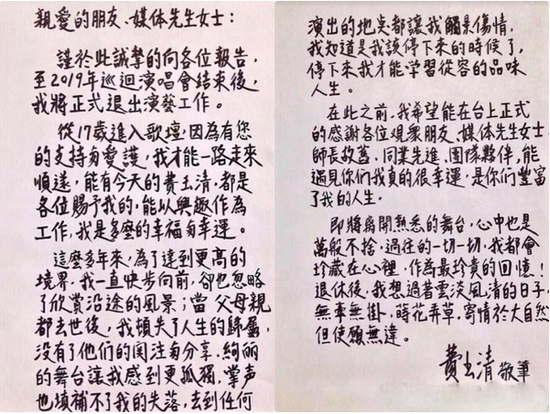 親愛的朋友、媒体先生女士：
謹於此誠摯的向各位報告，
至2019年巡迴演唱會結束後，
我將正式退出演藝工作。
從17歲進入歌壇，因為有您
的支持与愛護，我才能一路走來
順遂，能有今天的費玉清，都是
各位賜予我的，能以興趣作為
工作，我是多麼的幸福与幸運。
這麼多年來，為了達到更高的
境界，我一直快步向前，卻也忽略
了欣賞沿途的風景；當父母親
都去世後，我頓失了人生的歸屬，
沒有了他們的関注与分享，絢丽
的舞台讓我感到更孤獨，掌声
也填補不了我的失落，去到任何
演出的地点都讓我觸景傷情，
我知道是我該停下來的時候了，
停下來我才能学習從容的品味
人生。
在此之前，我希望能在台上正式
的感謝各位观衆朋友、媒体先生女士
師長故舊、同業先進、團隊夥伴，能
遇見你们我真的很幸運，是你们豐富
了我的人生。
即將离開熟悉的舞台，心中也是
萬般不捨，過往的一切一切，我都會
珍藏在心裡，作為最珍貴的回憶！
退休後，我想過著雲淡風清的日子，
無事無掛，蒔花弄草，寄情於大自然
但使願無違。
費玉清 敬筆